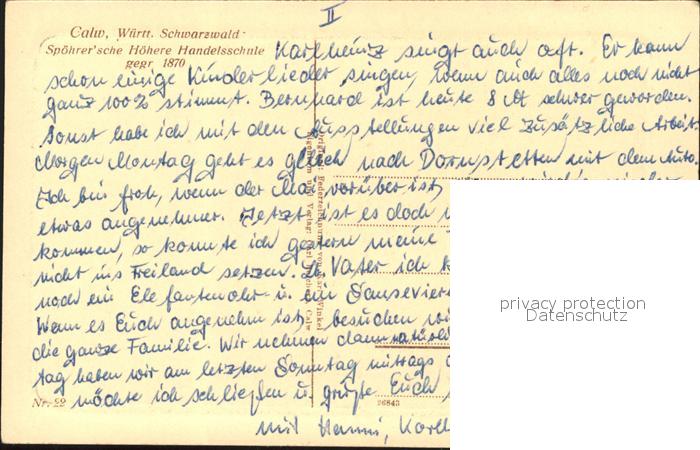 II
Calw, Württ. Schwarzwald
Spöhrer'sche Höhere Handelsschule
gegr. 1870
Karlheinz singt auch oft. Er kann
schon einige Kinderlieder singen, wenn auch alles noch nicht
ganz 100% stimmt. Bernhard ist heute 8 M schwer geworden.
Sonst habe ich mit den Ausstellungen viel zusätzliche Arbeit.
Morgen Montag geht es gleich nach Dornstetten mit dem Auto.
Ich bin froh, wenn der Mai vorüber ist,
etwas angenehmer. Jetzt ist es doch
kommen, so konnte ich gestern meine
nicht ins Freiland setzen. Lb. Vater ich
noch ein Elefantenohr u. ein Sansevier
Wenn es Euch angenehm ist, besuchen wi
die ganze Familie. Wir nehmen dann natürli
tag haben wir am letzten Sonntag mittags
möchte ich schließen u. grüße Euch
mit Hanni, Karlh
Nr. 22
26843
privacy protection
Datenschutz